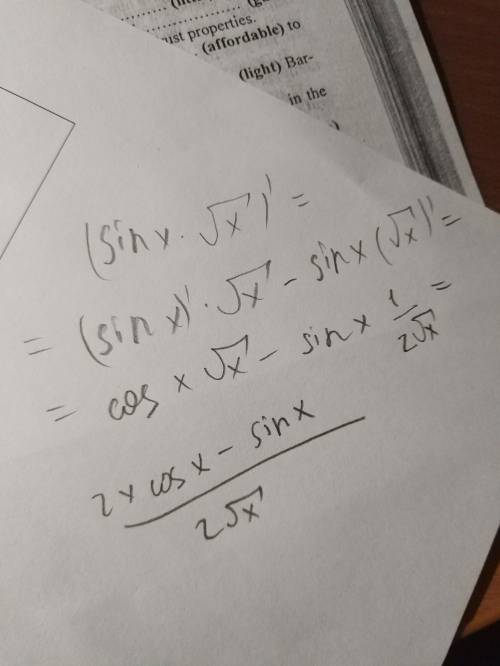 (lit
(ga
ust properties.
(affordable) to
(light) Bar-
in the
(sin x · √x)' =
= (sin x)' · √x - sin x (√x)' =
= cos x √x - sin x 1/2√x =
2x cos x - sin x / 2√x